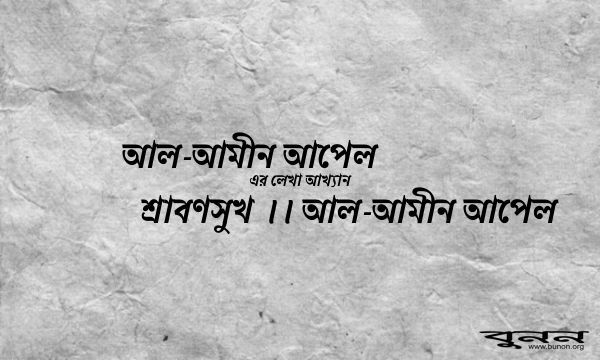 আল-আমীন আপেল
এর লেখা আখ্যান
শ্রাবণসুখ ।। আল-আমীন আপেল
বুনন
www.bunon.org